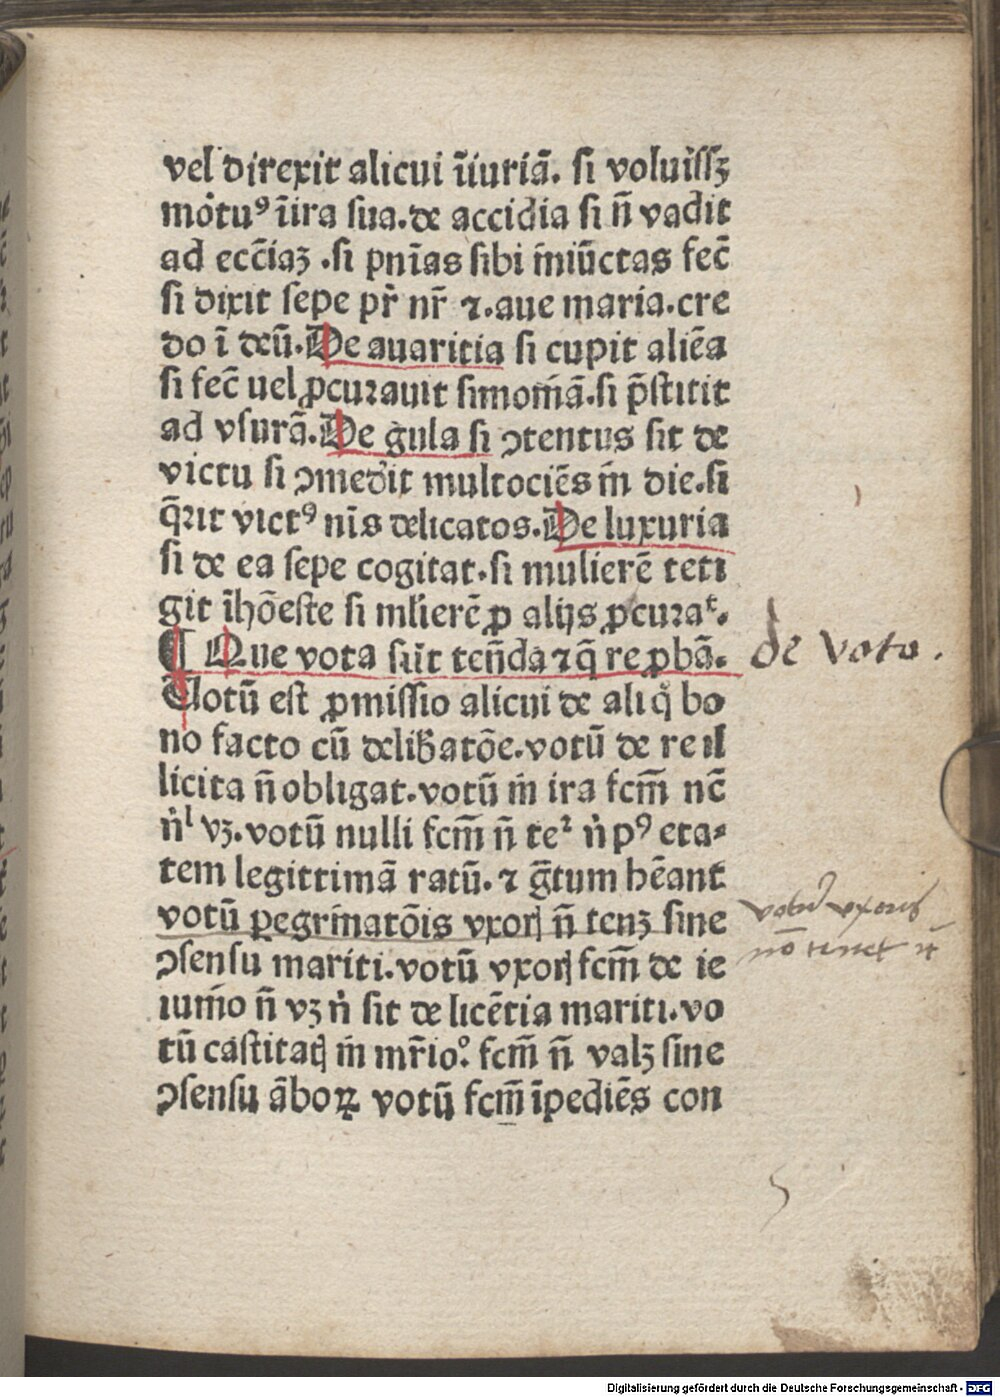 vel direxit alicui ĩiuriã. si voluiſſꝫ
motuꝰ ĩ ira sua. de accidia si ñ vadit
ad ecc̃iaꝫ . si pnĩas sibi ĩniũctas fec̃
si dixit sepe pr̃ nr̃ ⁊. aue maria. cre
do ĩ deũ. De auaritia si cupit aliẽa
si fec̃ uel ꝓcurauit simoniã. si p̃stitit
ad vsurã. De gula si ꝯtentus sit de
victu si ꝯmedit multociẽs in die. si
q̃rit victꝰ nĩs delicatos. De luxuria
si de ea sepe cogitat. si mulierẽ teti
git ĩhõeste si ml̃ierẽ ꝓ alijs ꝓcurat.
¶ Que vota sũt teñda ⁊ q̃ reꝓbã.
de voto .
Uotũ est ꝓmissio alicui de aliq̃ bo
no facto cũ delib̃atõe. votũ de re il
licita ñ obligat. votũ in ira fcm̃ nc̃
vꝫ. votũ nulli fcm̃ ñ te² pꝰ eta⸗
tem legittimã ratũ. ⁊ hẽant
votũ ꝑegrinatõis vxoꝝ ñ tenꝫ sine
ꝯsensu mariti. votũ vxoꝝ fcm̃ de ie
iunio ñ vꝫ sit de licẽtia mariti. vo
tũ castitatꝭ in mr̃io. fcm̃ ñ valꝫ sine
ꝯsensu ãboꝝ votũ fcm̃ ĩpediẽs con
Digitalisierung gefördert durch die Deutsche Forschungsgemeinschaft - DFG